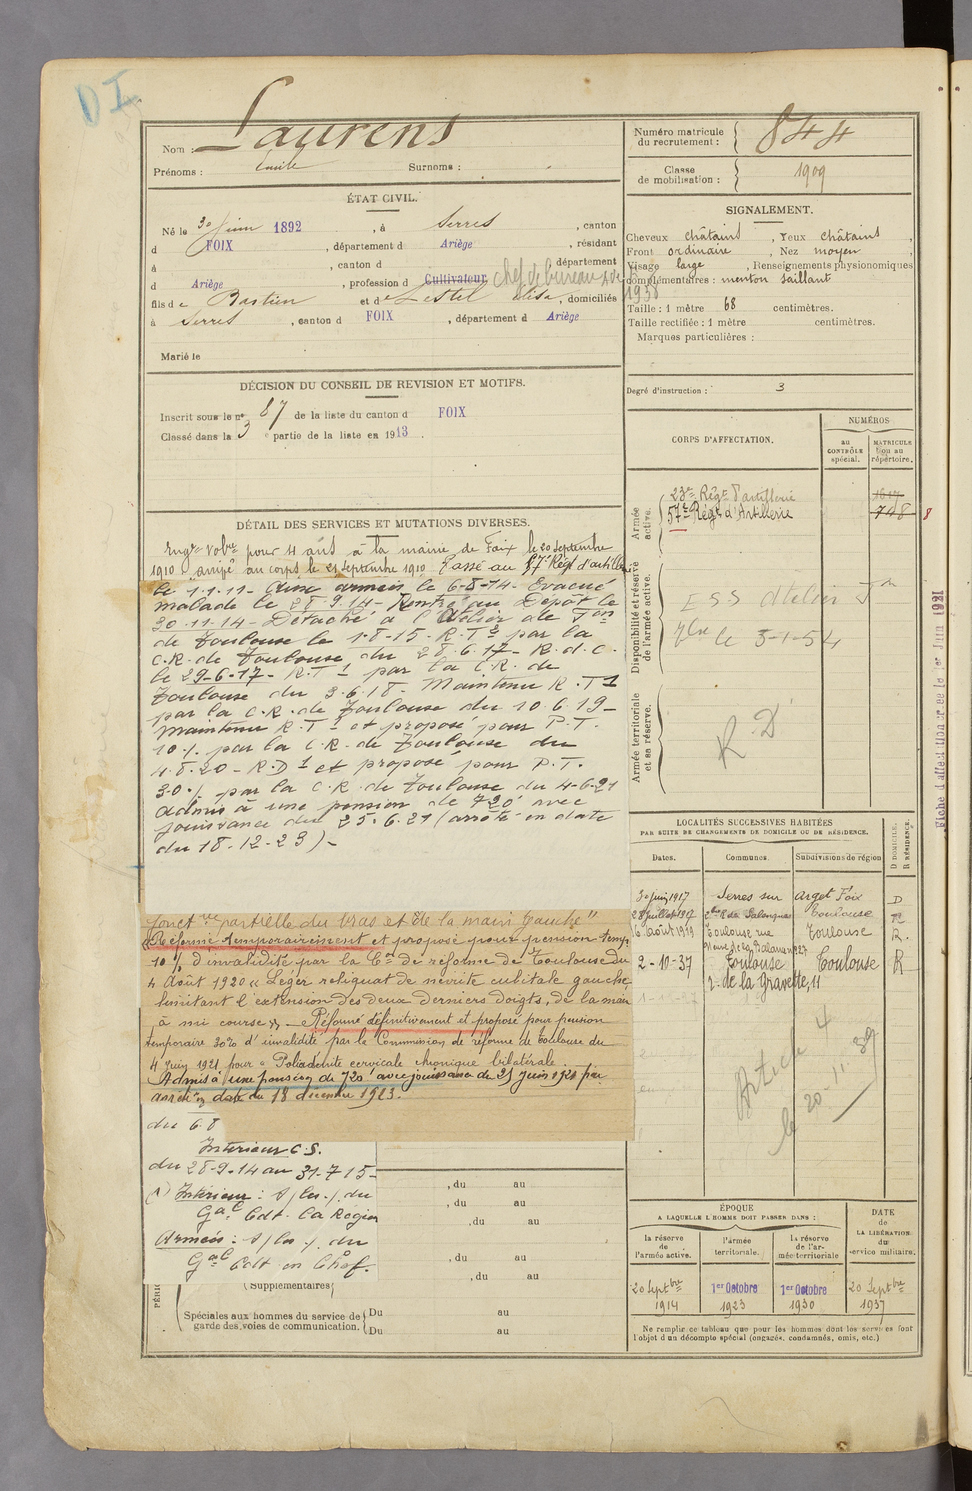 D I
Nom : Laurens
Prénoms : Emile Surnoms :
Numéro matricule du recrutement : 844
Classe de mobilisation : 1909
ÉTAT CIVIL.
Né le 30 juin 1892, à Serres, canton
d FOIX, département d Ariège, résidant
à , canton d , département
d Ariège, profession d Cultivateur chef de bureau
fils de Bastien et de Estel Elise, domiciliés
à Serres, canton d FOIX, département d Ariège
Marié le
SIGNALEMENT.
Cheveux châtains, Yeux châtains,
Front ordinaire, Nez moyen,
Visage large, Renseignements physionomiques
complémentaires : menton saillant
1938
Taille : 1 mètre 68 centimètres.
Taille rectifiée : 1 mètre centimètres.
Marques particulières :
Degré d'instruction : 3
DÉCISION DU CONSEIL DE REVISION ET MOTIFS.
Inscrit sous le n° 87 de la liste du canton d FOIX
Classé dans la 3e partie de la liste en 1913.
CORPS D'AFFECTATION.
NUMÉROS
au CONTRÔLE spécial.
MATRICULE ou au répertoire.
Armée active.
23e Régt d'artillerie
57e Régt d'Artillerie 748 8
Disponibilité et réserve de l'armée active.
ESS Atelier Ton
le 3-1-54
Armée territoriale et sa réserve.
R.D
DÉTAIL DES SERVICES ET MUTATIONS DIVERSES.
Engt volre pour 4 ans à la mairie de Foix le 20 Septembre
1910 arrivé au corps le 21 Septembre 1910 Passé au 57e Régt d'artillerie
le 1.1.11 - Aux armées le 6-8-14 - Evacué
malade le 28.9.14 - Rentré au Dépôt le
30.11.14 - Détaché à l'Atelier de Ton
de Toulouse le 1-8-15 - R.T2 par la
C.R. de Toulouse du 28.6.17 - R.d.C.
le 29-6-17 - R.T1 par la C.R. de
Toulouse du 3.6.18 - Maintenu R.T1
par la C.R. de Toulouse du 10.6.19 -
Maintenu R.T1 et proposé pour P.T.
10% par la C.R. de Toulouse du
4.8.20 - R.D1 et proposé pour P.T.
30% par la C.R. de Toulouse du 4-6-21
Admis à une pension de 720f avec
jouissance du 25.6.21 (arrêté en date
du 18-12-23) -
fonctre partielle du bras et de la main gauche"
Réformé temporairement et proposé pour pension temp.
10% d'invalidité par la Con de réforme de Toulouse du
4 Août 1920 « Léger reliquat de névrite cubitale gauche
limitant l'extension des deux derniers doigts, de la main
à mi course » - Réformé définitivement et proposé pour pension
temporaire 30% d'invalidité par la Commission de réforme de Toulouse du
4 Juin 1921 pour « Poliadénite cervicale chronique bilatérale
Admis à une pension de 720f avec jouissance du 25 Juin 1921 par
arrêté en date du 18 décembre 1923.
du 6.8
Intérieur C.S.
du 28-9-14 au 31-7-15 -
(1) Intérieur : s/ du
Gal Cdt. la Région
Armées : s/ du
Gal Cdt en Chef.
, du au
, du au
, du au
, du au
, du au
Supplémentaires
Spéciales aux hommes du service de garde des voies de communication.
Du au
Du au
LOCALITÉS SUCCESSIVES HABITÉES
PAR SUITE DE CHANGEMENTS DE DOMICILE OU DE RÉSIDENCE.
Dates. Communes. Subdivisions de région D DOMICILE. R RÉSIDENCE.
30 juin 1917 Serres sur Arget Foix D
28 Juillet 1917 Salonques Toulouse R
6 Août 1919 Toulouse rue Toulouse R.
2-10-37 Toulouse Toulouse R
r. de la Gravette, 11
Article 4
le 20.11.39
ÉPOQUE
A LAQUELLE L'HOMME DOIT PASSER DANS :
DATE de LA LIBÉRATION du service militaire.
la réserve de l'armée active. l'armée territoriale. la réserve de l'armée territoriale
20 Septbre 1914 1er Octobre 1923 1er Octobre 1930 20 Septbre 1937
Ne remplir ce tableau que pour les hommes dont les services font
l'objet d'un décompte spécial (engagés, condamnés, omis, etc.)